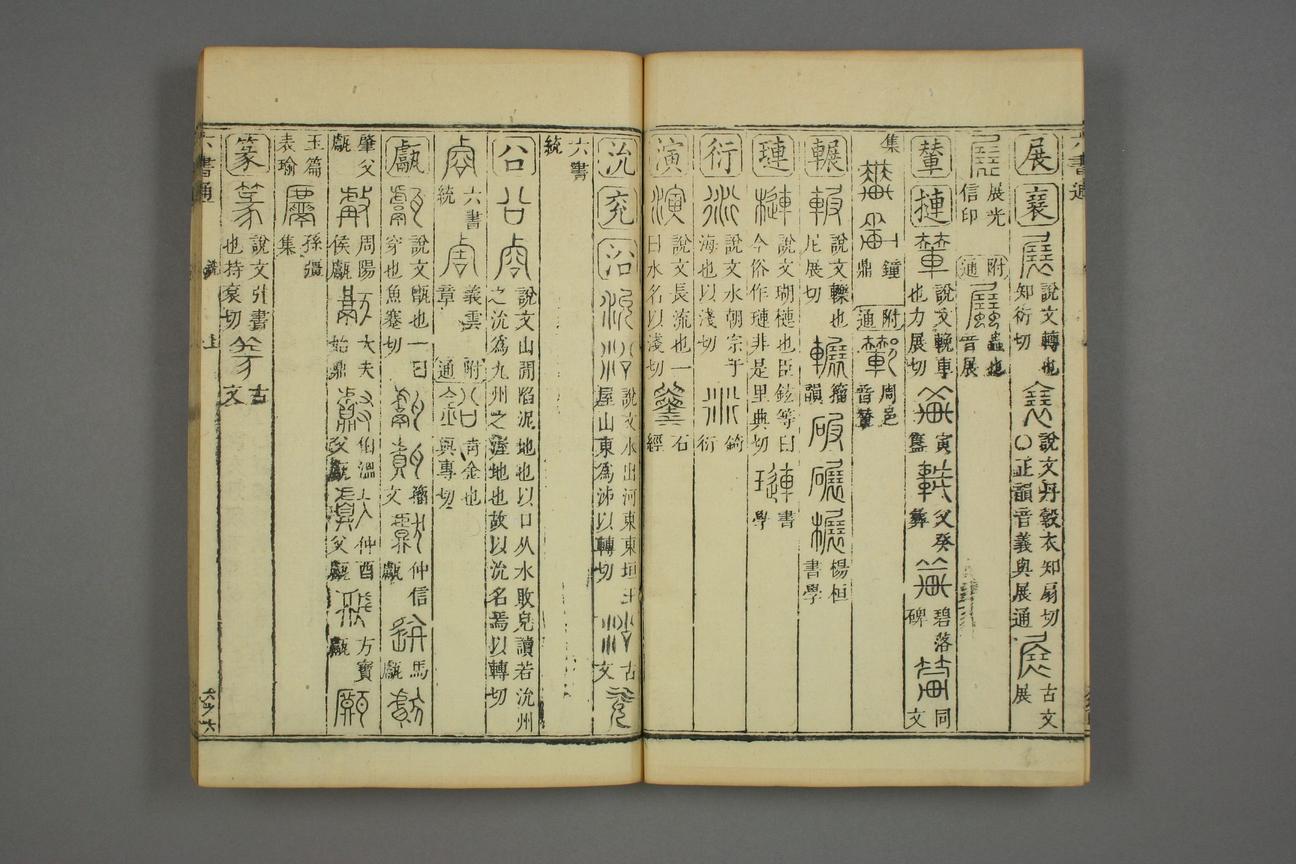 六書通
展 襄 說文轉也知衍切 說文丹縠衣知扇切〇正韻音義與展通 古文展
展光信印 附通 蟲也音展
輦 摙 說文輓車也力展切 寅簋 父癸彝 碧落碑 同文
集 一鐘鼎 附通 周邑音輦
輾 說文轢也尼展切 籀韻 楊桓書學
璉 說文瑚槤也臣鉉等曰今俗作璉非是里典切 書學
衍 說文水朝宗于海也以淺切 錡衍
演 說文長流也一曰水名以淺切 石經
沇 兖 沿 說文水出河東東垣王屋山東為泲以轉切 古文
六書統
㕣 說文山閒陷泥地也以口从水敗皃讀若沇州之沇為九州之渥地也故以沇名焉以轉切
六書統 義雲章 附通 青金也與專切
甗 說文甑也一曰穿也魚蹇切 籀文 仲信甗 馬甗
肇父甗 周陽侯甗 大夫始鼎 伯溫父甗 仲酉父甗 方寶甗
玉篇 袁瑜 孫彊集
篆 說文引書也持兗切 古文
六書通 上